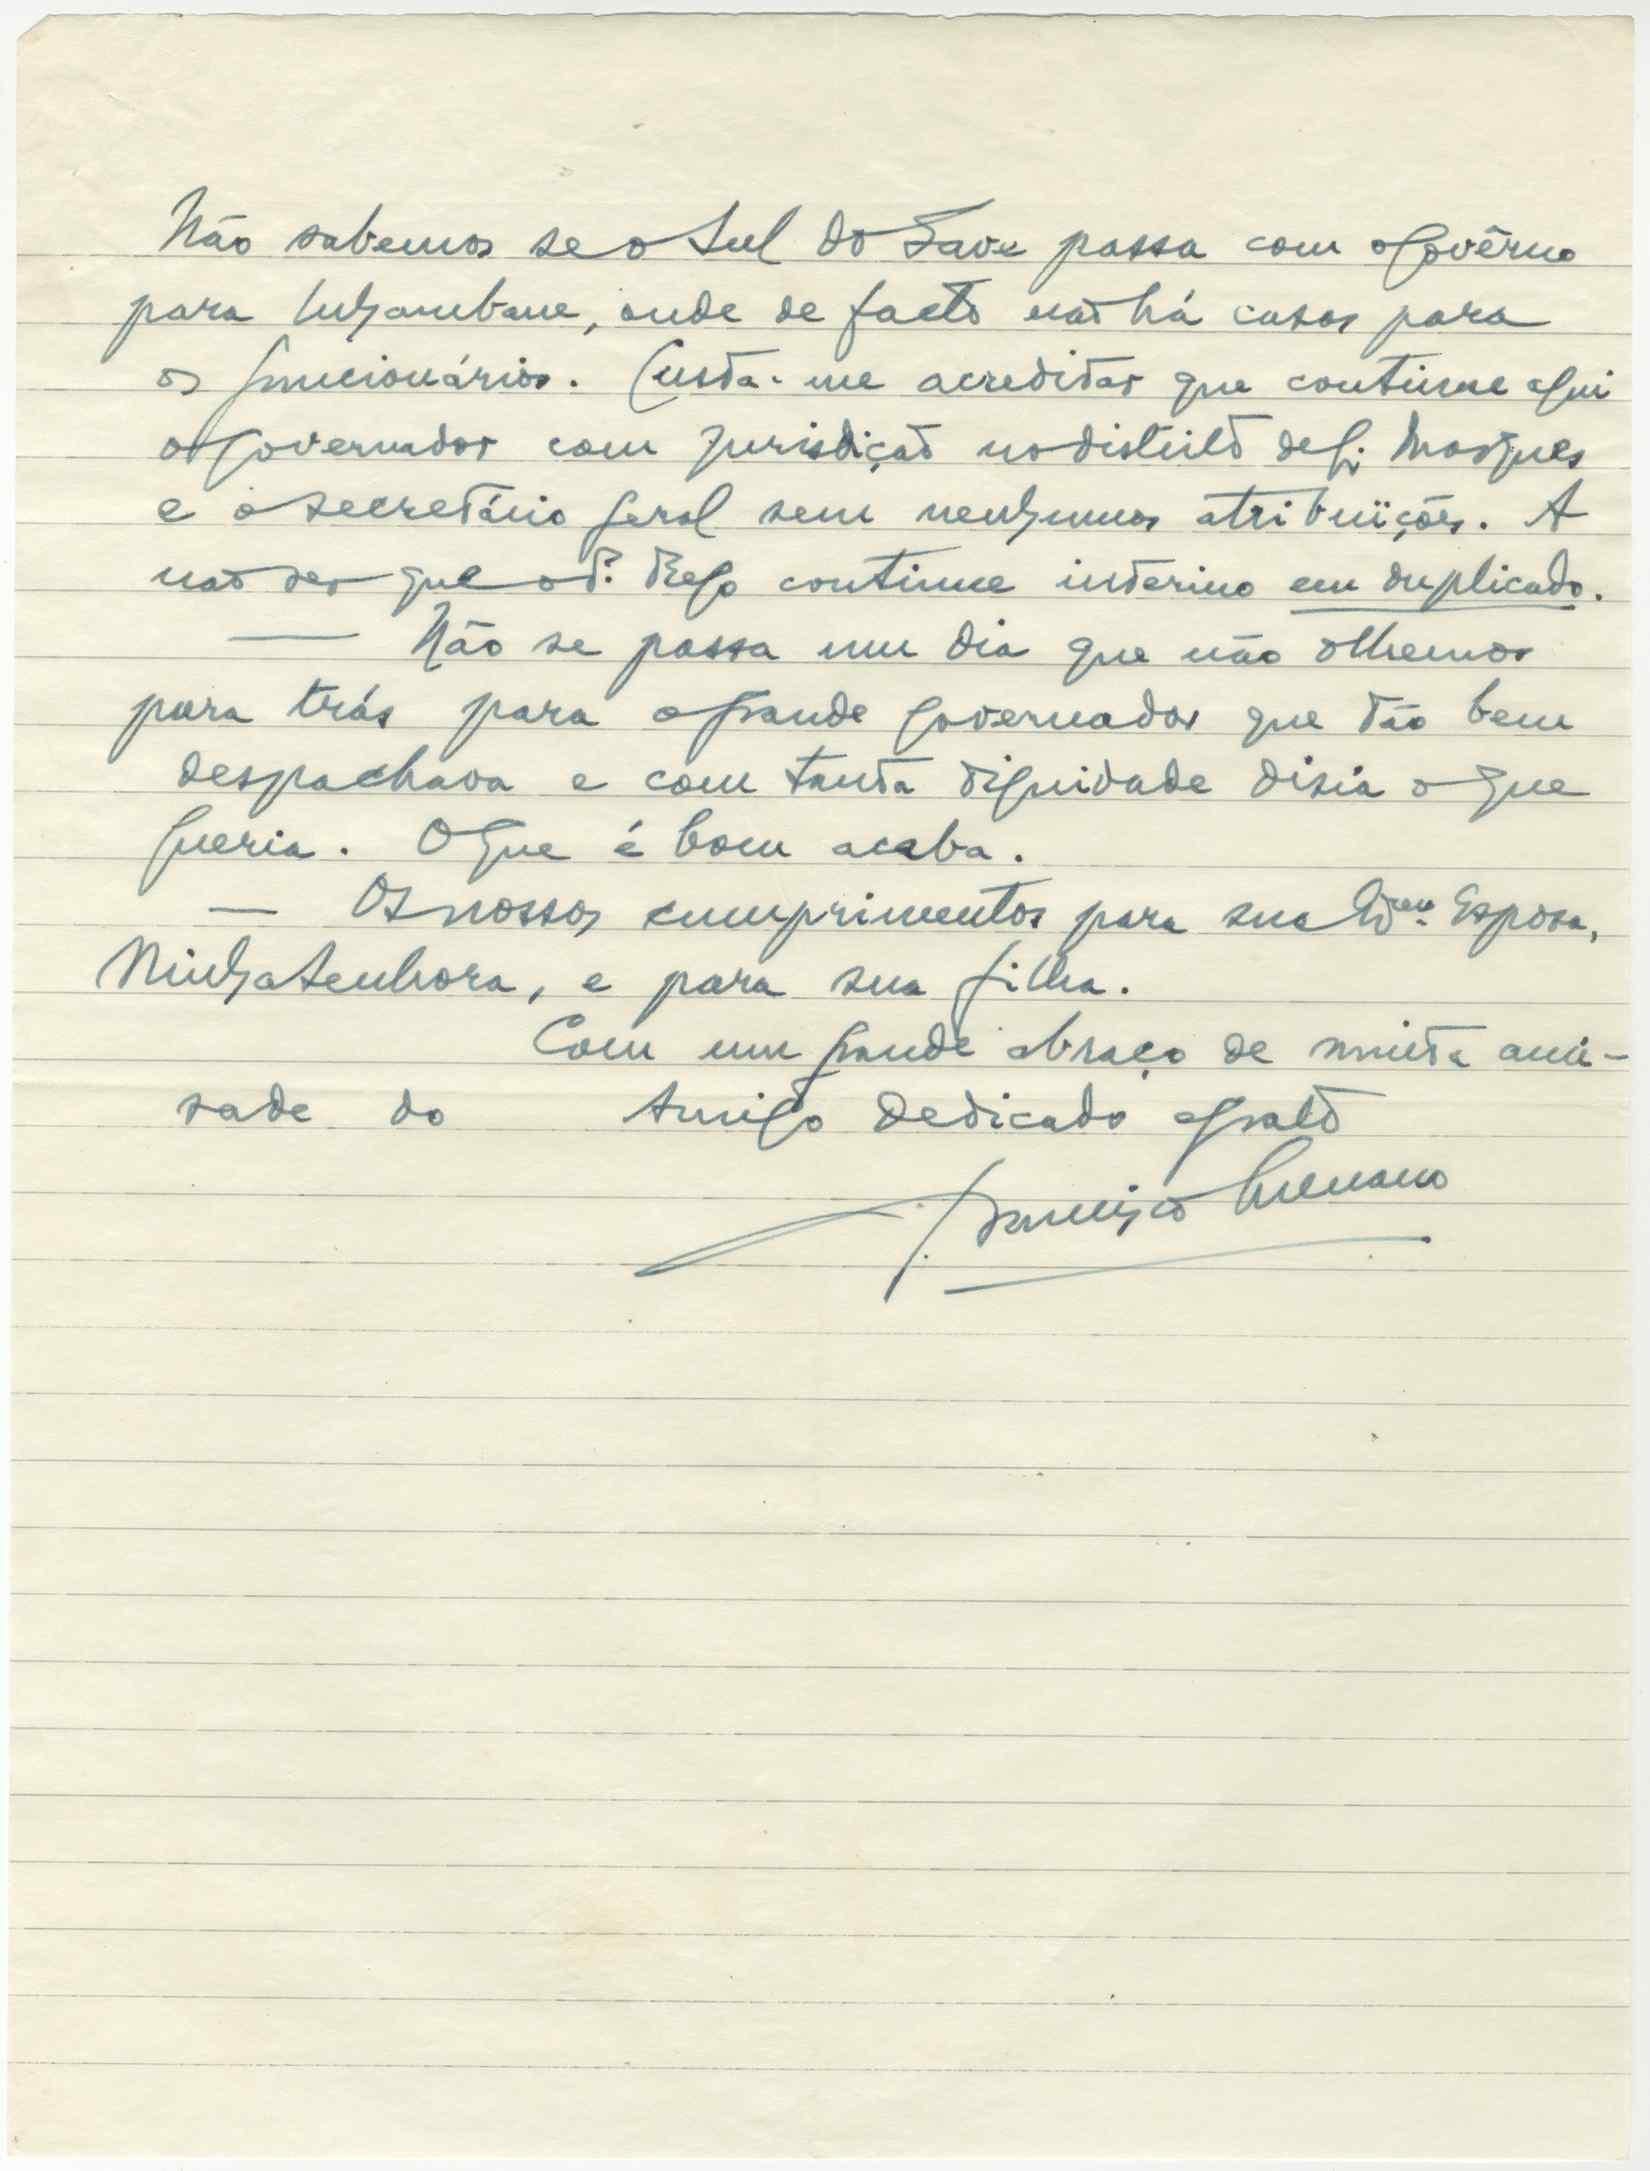 Não sabemos se o Sul do Save passa com o Govêrno
para Inhambane, onde de facto não há casas para
os funcionários. Custa-me acreditar que continue aqui
o Governador com jurisdição no distrito de L. Marques
e o Secretário Geral sem nenhumas atribuïções. A
não ser que o Dr. Rego continue interino em duplicado.
— Não se passa um dia que não olhemos
para trás para o grande Governador que tão bem
despachava e com tanta dignidade disia o que
queria. O que é bom acaba.
— Os nossos cumprimentos para sua Esposa,
Minha Senhora, e para sua filha.
Com um grande abraço de muita ami-
sade do Amigo dedicado e grato
Francisco